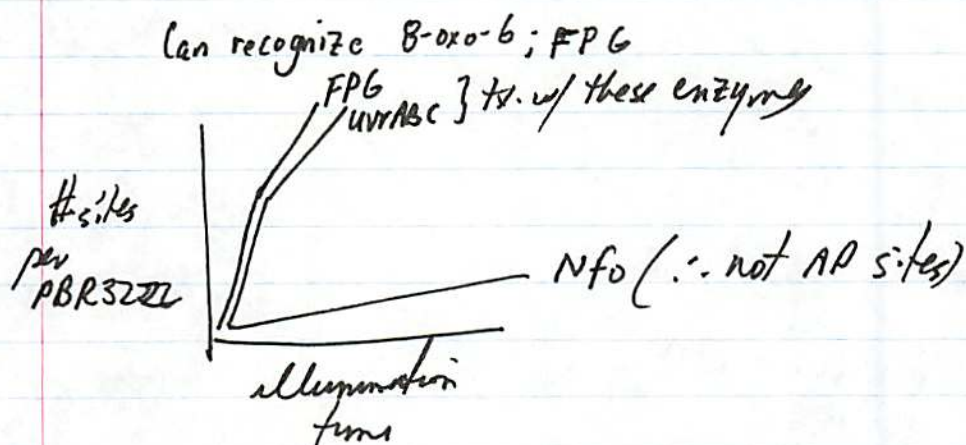 Can recognize 8-oxo-G; FPG
FPG
uvrABC } tx. w/ these enzymes
# sites
per
PBR322
Nfo (∴ not AP sites)
illumination
time